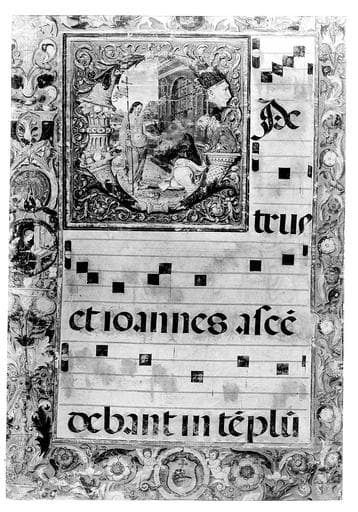 PE
trus
et ioannes aſcē
debant in tēplū